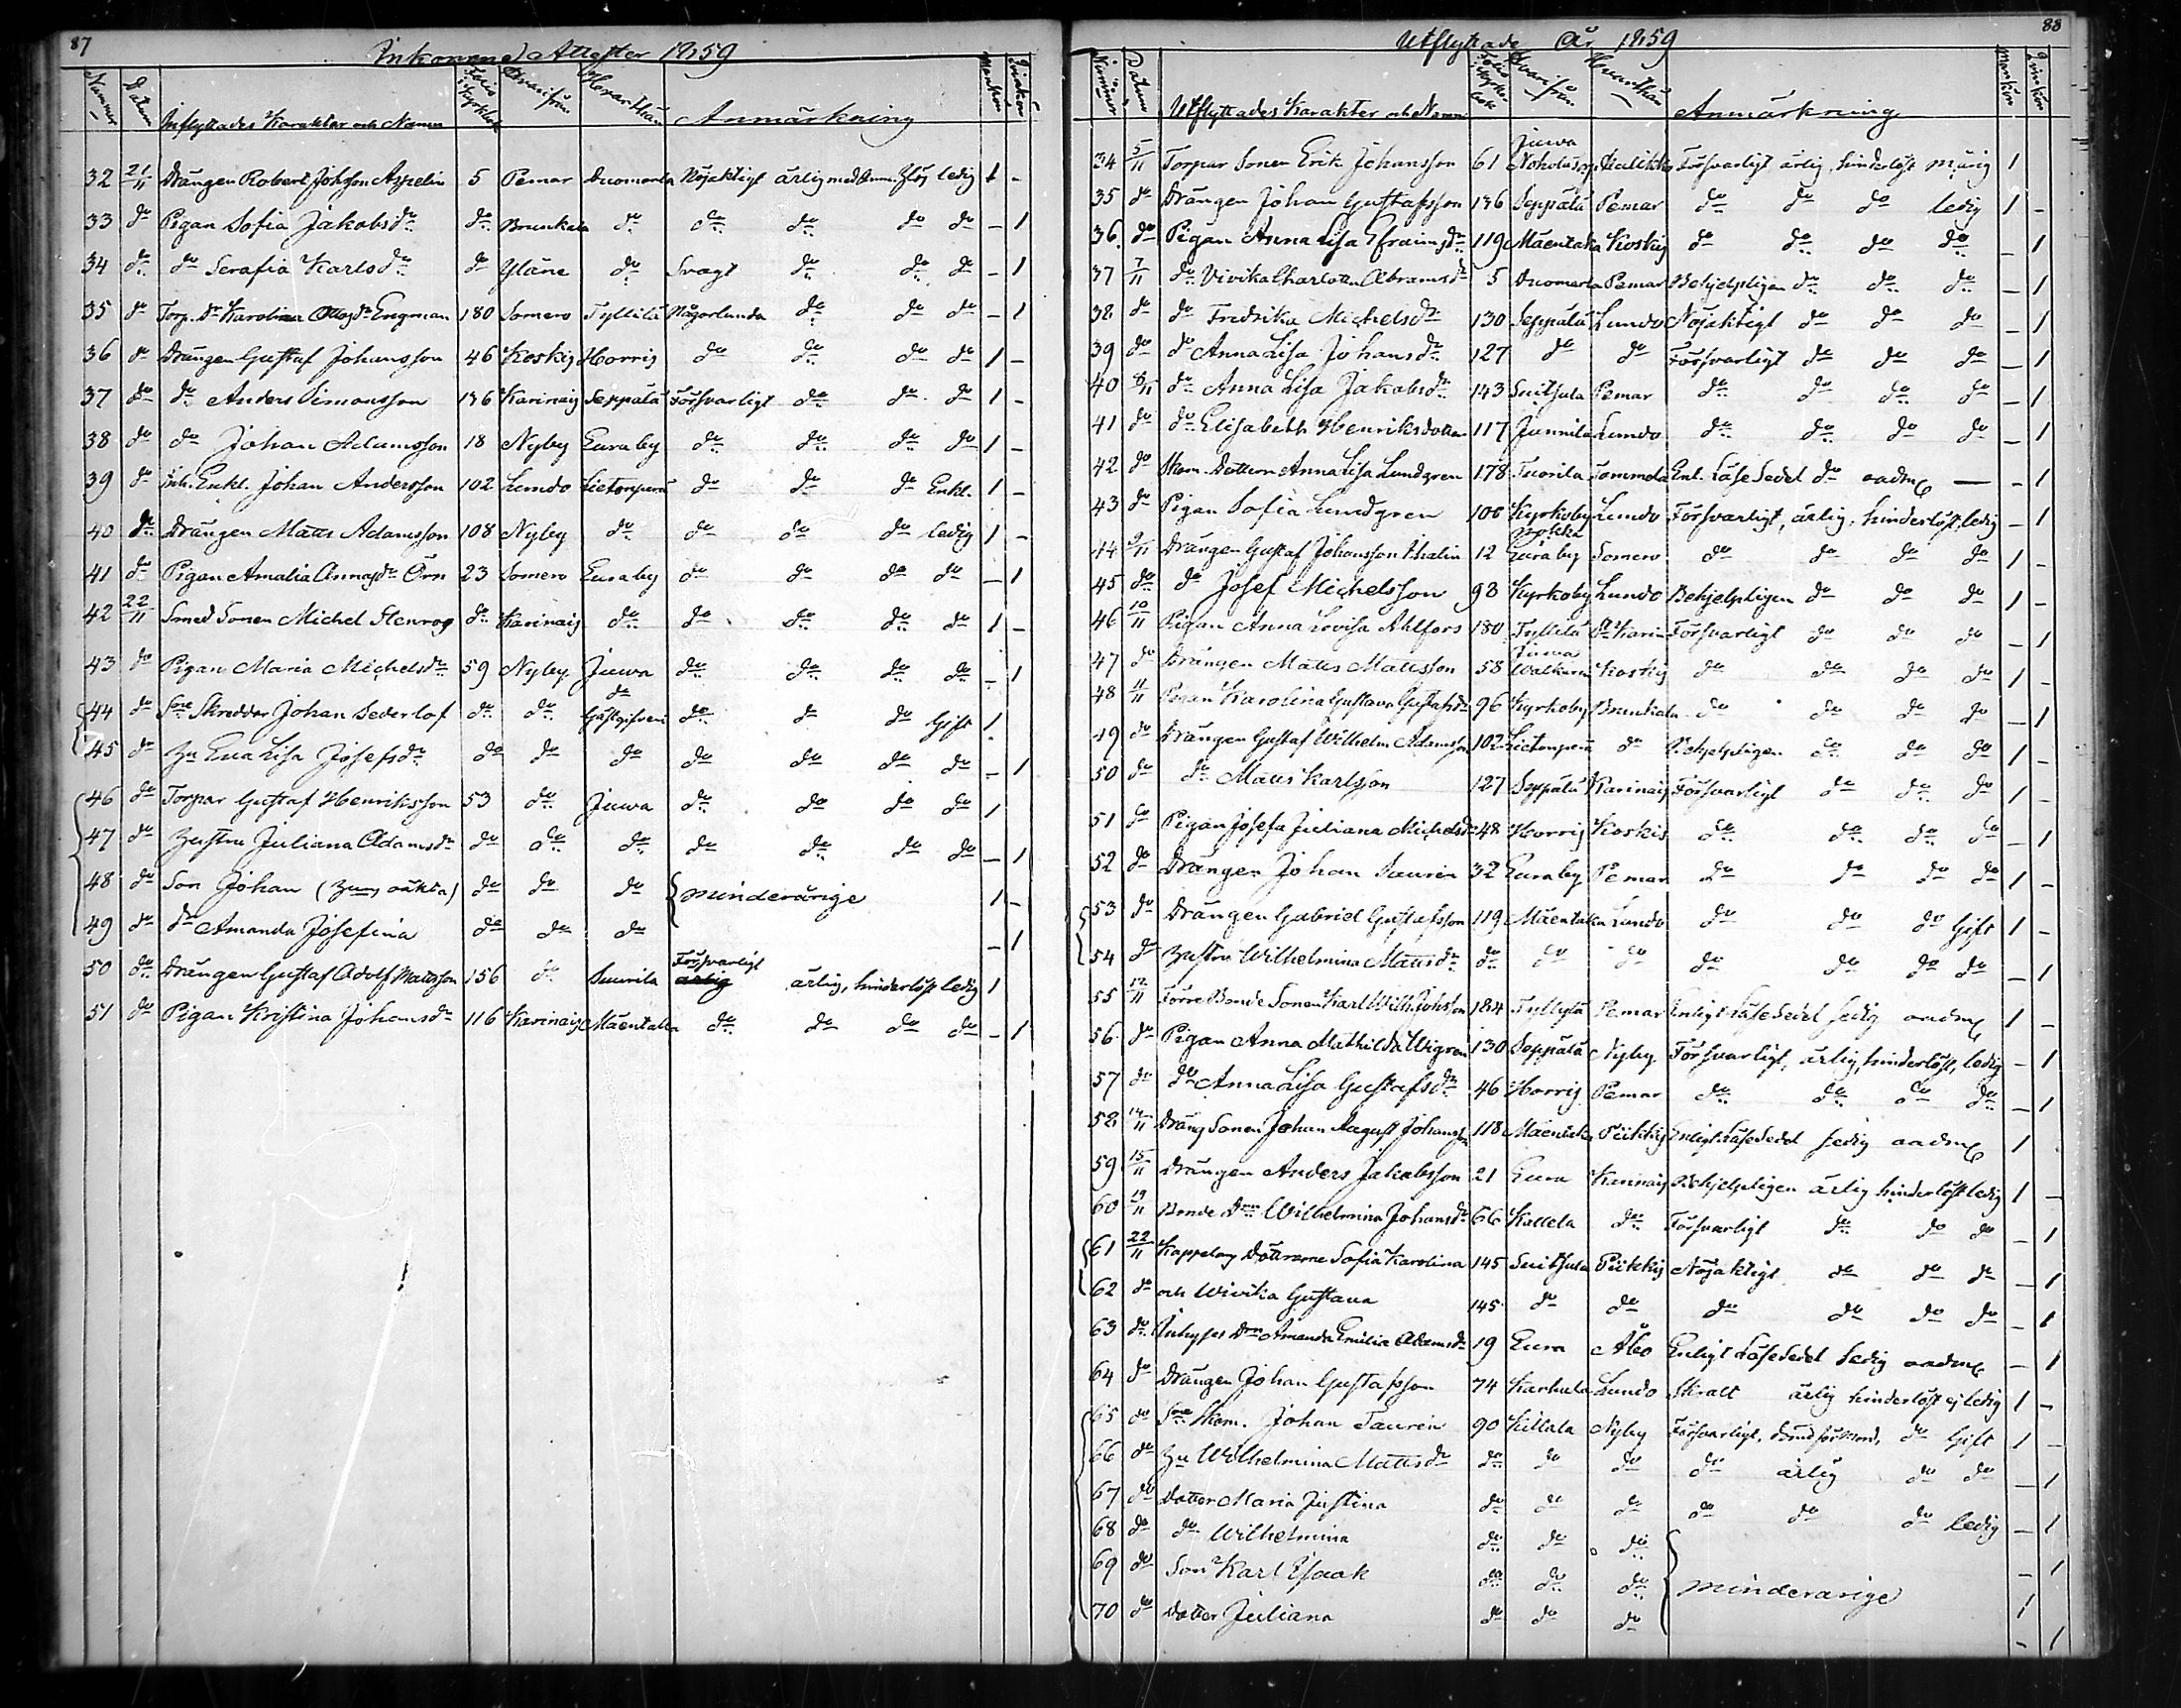 87
Inkomne Attester 1859
Nummer Datum Inflyttades Karakter och Namn Folio i Kyrkbok Hvarifrån Hvarthän Anmärkning Mankön Qvinkön
32 21/11 Drängen Robert Johsson Aspelin 5 Pemar Duomarla Nöjaktigt ärlig ledig 1 -
33 do Pigan Sofia Jakobsdr do Brunkala do do do do do - 1
34 do do Serafia Karlsdr do Yläne do Svagt do do do - 1
35 do Torp. Dr Karolina Ottosdr Engman 180 Somero Tyllilä Någorlunda do do do - 1
36 do Drängen Gustaf Johansson 46 Koskis Horris do do do do 1 -
37 do do Anders Simonsson 136 Karinais Seppälä Försvarligt do do do 1 -
38 do do Johan Adamsson 18 Nyby Euraby do do do do 1 -
39 do Inh. Enkl. Johan Andersson 102 Lundo Lietonperä do do do Enkl. 1 -
40 do Drängen Matts Adamsson 108 Nyby do do do do ledig 1 -
41 do Pigan Amalia Annasdr Örn 23 Somero Euraby do do do do - 1
42 22/11 Smed Sonen Michel Stenros do Karinais do do do do do 1 -
43 do Pigan Maria Michelsdr 59 Nyby Juwa do do do do - 1
44 do Skreddar Johan Sederlof do do do Gästgifveri do do do Gift 1
45 do Hu Eva Lisa Josefsdr do do do do do do do - 1
46 do Torpar Gustaf Henriksson 53 do Juwa do do do do 1
47 do Hustru Juliana Adamsdr do do do do do do do - 1
48 do Son Johan (Hus oäkta) do do do minderårige 1 -
49 do dr Amanda Josefina do do do - 1
50 do Drängen Gustaf Adolf Mattsson 156 do Suurila Försvarligt ärlig, hinderlöst ledig 1
51 do Pigan Kristina Johansdr 116 Karinais Mäentaka do do do do - 1
88
Utflyttade År 1859
Nummer Datum Utflyttades Karakter och Namn Folio i Kyrkobok Hvarifrån Hvarthän Anmärkning Mankön Qvinkön
34 5/11 Torpar Sonen Erik Johansson 61 Juwa Halikko Försvarligt ärlig, hinderlöst 1
35 do Drängen Johan Gustafsson 136 Seppälä Pemar do do do ledig 1 -
36 do Pigan Anna Lisa Efraimsdr 119 Mäentaka Koskis do do do do - 1
37 7/11 do Vivika Charlotta Abramsdr 5 Duomarla Pemar Behjelpligen do do do - 1
38 do do Fredrika Michelsdr 130 Seppälä Lundo Nöjaktigt do do do - 1
39 do do Anna Lisa Johansdr 127 do do Försvarligt do do do - 1
40 8/11 do Anna Lisa Jakobsdr 143 Suitsula Pemar do do do do - 1
41 do do Elisabeth Henriksdotter 117 Junnila Lundo do do do do - 1
42 do Skom. Dottern Anna Lisa Lundgren 178 Tuorila Sommola Enl. Läse Sedel do - 1
43 do Pigan Sofia Lundgren 100 Kyrkoby Lundo Försvarligt, ärlig, hinderlöst, ledig - 1
44 9/11 Drängen Gustaf Johansson Thalin 12 Euraby Somero do do do do 1 -
45 do do Josef Michelsson 98 Kyrkoby Lundo Behjelpligen do do do 1 -
46 10/11 Pigan Anna Lovisa Ahlfors 180 Tyllilä St Karin Försvarligt do do do - 1
47 do Drängen Matts Mattsson 58 Juwa Koskis do do do do 1 -
48 11/11 Pigan Karolina Gustava Gustafsdr 96 Kyrkoby Brunkala do do do do - 1
49 do Drängen Gustaf Wilhelm Adamsson 102 Lietonperä do Behjelpligen do do do 1 -
50 do do Matts Karlsson 127 Seppälä Karinais Försvarligt do do do 1 -
51 do Pigan Josefa Juliana Michelsdr 48 Horris Koskis do do do do - 1
52 do Drängen Johan Saurin 32 Euraby Pemar do do do do 1 -
53 do Drängen Gabriel Gustafsson 119 Mäentaka Lundo do do do Gift 1 -
54 do Hustru Wilhelmina Mattsdr do do do do do do do - 1
55 12/11 Förre Bonde Sonen Karl Wilh. Johsson 184 Tyllilä Pemar Enligt Läse Sedel ledig 1 -
56 do Pigan Anna Mathilda Wigren 130 Seppälä Nyby Försvarligt, ärlig, hinderlöst, ledig - 1
57 do do Anna Lisa Gustafsdr 46 Horris Pemar do do do do - 1
58 14/11 Dräng Sonen Johan August Johansson 118 Mäentaka Piikkis Enligt Läse Sedel ledig 1
59 15/11 Drängen Anders Jakobsson 21 Eura Karinais Behjelpligen ärlig hinderlöst ledig 1 -
60 19/11 Bonde Drn Wilhelmina Johansdr 66 Kallela do Försvarligt do do do - 1
61 22/11 Kappelans Döttrarne Sofia Karolina 145 Suitsula Piikkis Nöjaktigt do do do - 1
62 do och Wivika Gustava 145 do do do do do do - 1
63 do Inhyses Drn Amanda Emilia Adamsdr 19 Eura Åbo Enligt Läse Sedel ledig - 1
64 do Drängen Johan Gustafsson 74 Karhula Lundo Skralt ärlig hinderlöst ej ledig 1 -
65 do Skom. Johan Taurén 90 Killala Nyby Försvarligt, dömd för do Gift 1 -
66 do Hu Wilhelmina Mattsdr do do do do ärlig do do - 1
67 do Dotter Maria Justina do do do do do do ledig - 1
68 do do Wilhelmina do do do - 1
69 do Son Karl Isaak do do do minderarige 1
70 do Dotter Juliana do do do - 1